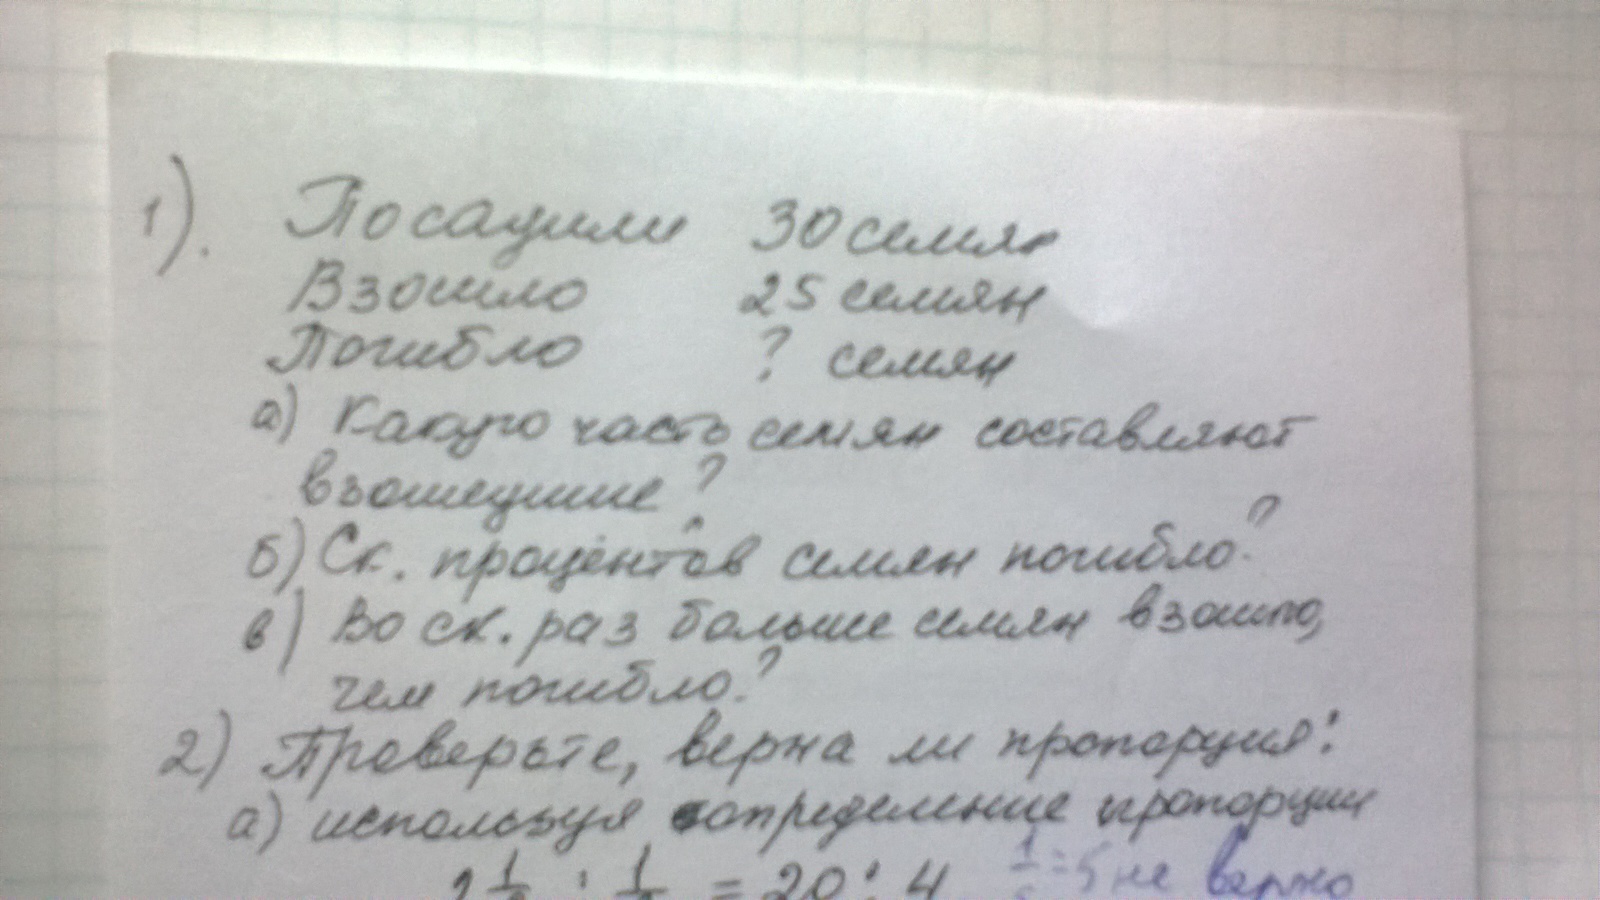 1). Посадили 30 семян
Взошло 25 семян
Погибло ? семян
а) Какую часть семян составляют
взошедшие?
б) Ск. процентов семян погибло?
в) Во ск. раз больше семян взошло,
чем погибло?
2) Проверьте, верна ли пропорция:
а) используя определение пропорции
= 20 : 4 = 5 не верно